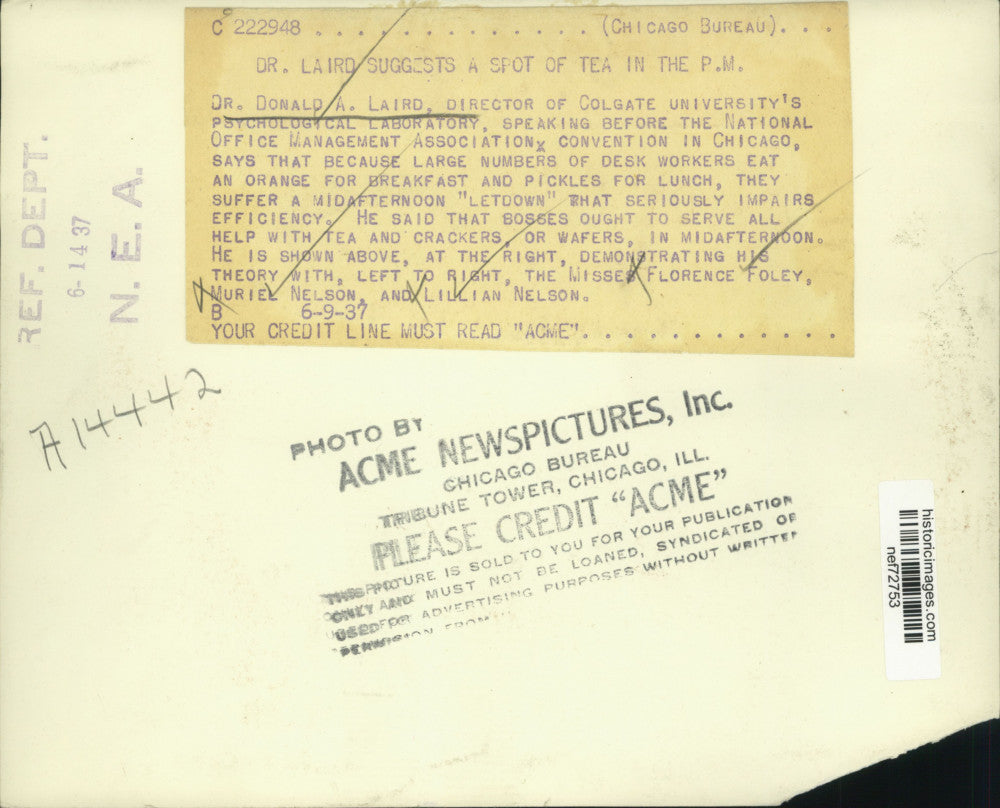 C 222948 . . . . . . . . . . . . . . (CHICAGO BUREAU). . .
DR. LAIRD SUGGESTS A SPOT OF TEA IN THE P.M.
DR. DONALD A. LAIRD, DIRECTOR OF COLGATE UNIVERSITY'S
PSYCHOLOGICAL LABORATORY, SPEAKING BEFORE THE NATIONAL
OFFICE MANAGEMENT ASSOCIATION CONVENTION IN CHICAGO,
SAYS THAT BECAUSE LARGE NUMBERS OF DESK WORKERS EAT
AN ORANGE FOR BREAKFAST AND PICKLES FOR LUNCH, THEY
SUFFER A MIDAFTERNOON "LETDOWN" THAT SERIOUSLY IMPAIRS
EFFICIENCY. HE SAID THAT BOSSES OUGHT TO SERVE ALL
HELP WITH TEA AND CRACKERS, OR WAFERS, IN MIDAFTERNOON.
HE IS SHOWN ABOVE, AT THE RIGHT, DEMONSTRATING HIS
THEORY WITH, LEFT TO RIGHT, THE MISSES FLORENCE FOLEY,
MURIEL NELSON, AND LILLIAN NELSON.
B 6-9-37
YOUR CREDIT LINE MUST READ "ACME". . . . . . . . . . . . .
REF. DEPT.
6-14 37
N. E. A.
A14442
PHOTO BY
ACME NEWSPICTURES, Inc.
CHICAGO BUREAU
TRIBUNE TOWER, CHICAGO, ILL.
PLEASE CREDIT "ACME"
THIS PICTURE IS SOLD TO YOU FOR YOUR PUBLICATION
ONLY AND MUST NOT BE LOANED, SYNDICATED OR
USED FOR ADVERTISING PURPOSES WITHOUT WRITTEN
PERMISSION FROM
historicimages.com
nef72753